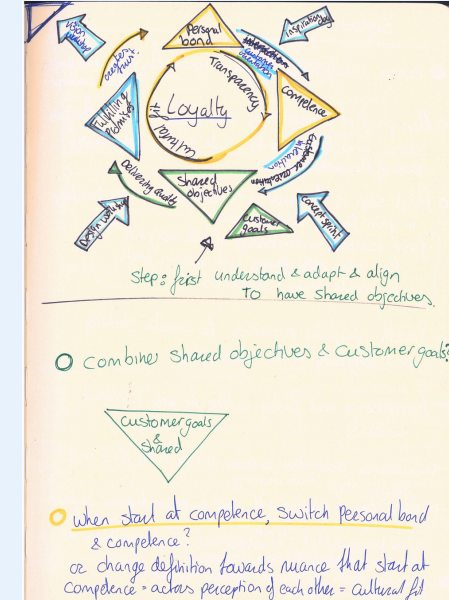 Personal
bond
Inspiration
day
customer
orientation
creating
trust
Transparency
Competence
Fulfilling
Promises
Loyalty
Cultural
fit
customer orientation
interaction
Delivering quality
Shared
objectives
Customer
goals
Design workshop
Concept sprint
Step: first understand & adapt & align
To have shared objectives.
Combine shared objectives & customer goals?
Customer goals
&
shared
When start at competence, switch Personal bond
& competence?
or change definition towards nuance that start at
competence = actors perception of each other = cultural fit